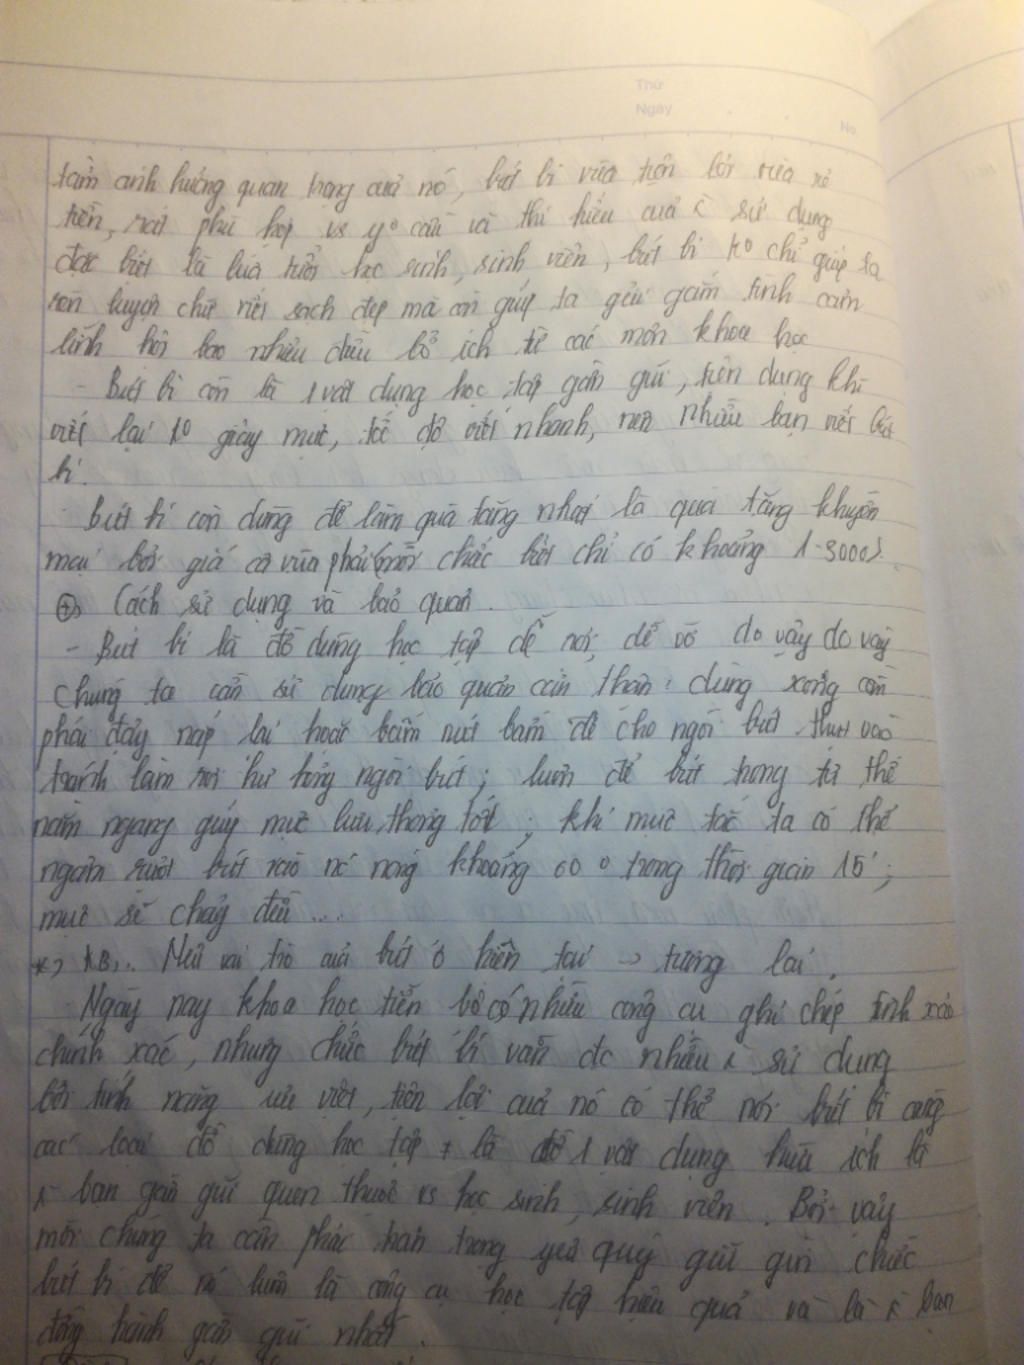 Thứ
Ngày
No
tầm ảnh hưởng quan trọng của nó, bút bi vừa tiện lợi vừa rẻ
tiền, rất phù hợp vs yº cầu và thị hiếu của sử dụng
đặc biệt là lứa tuổi học sinh, sinh viên, bút bi kº chỉ giúp ta
rèn luyện chữ viết sạch đẹp mà còn giúp ta gửi gắm tình cảm
lĩnh hội bao nhiêu điều bổ ích từ các môn khoa học
- Bút bi còn là 1 vật dụng học tập gần gũi, tiện dụng khi
viết lại kº giây mực, tốc độ viết nhanh, nên nhiều bạn viết bút
bi.
- Bút bi còn dùng để làm quà tặng nhất là quà tặng khuyến
mại bởi giá cả vừa phải (mỗi chiếc bút chỉ có khoảng 1-3000)
⊕, Cách sử dụng và bảo quản.
- Bút bi là đồ dùng học tập dễ rơi, dễ vỡ do vậy do vậy
chúng ta cần sử dụng bảo quản cẩn thận: dùng xong cần
phải đậy nắp lại hoặc bấm nút bấm để cho ngòi bút thụt vào
tránh làm rơi hư hỏng ngòi bút; luôn để bút trong tư thế
nằm ngang giúp mực lưu thông tốt; khi mực tắc ta có thể
ngâm ruột bút vào nc nóng khoảng 60 º trong thời gian 15';
mực sẽ chảy đều....
*, KB,.. Nêu vai trò của bút ở hiện tại → tương lai.
- Ngày nay khoa học tiến bộ có nhiều công cụ ghi chép tinh xảo
chính xác, nhưng chiếc bút bi vẫn đc nhiều sử dụng
bởi tính năng ưu việt, tiện lợi của nó có thể nói bút bi cũng
các loại đồ dùng học tập là 1 vật dụng hữu ích là
bạn gần gũi quen thuộc vs học sinh, sinh viên. Bởi vậy
mỗi chúng ta cần phải trân trọng yêu quý giữ gìn chiếc
bút bi để nó luôn là công cụ học tập hiệu quả và là bạn
đồng hành gần gũi nhất.